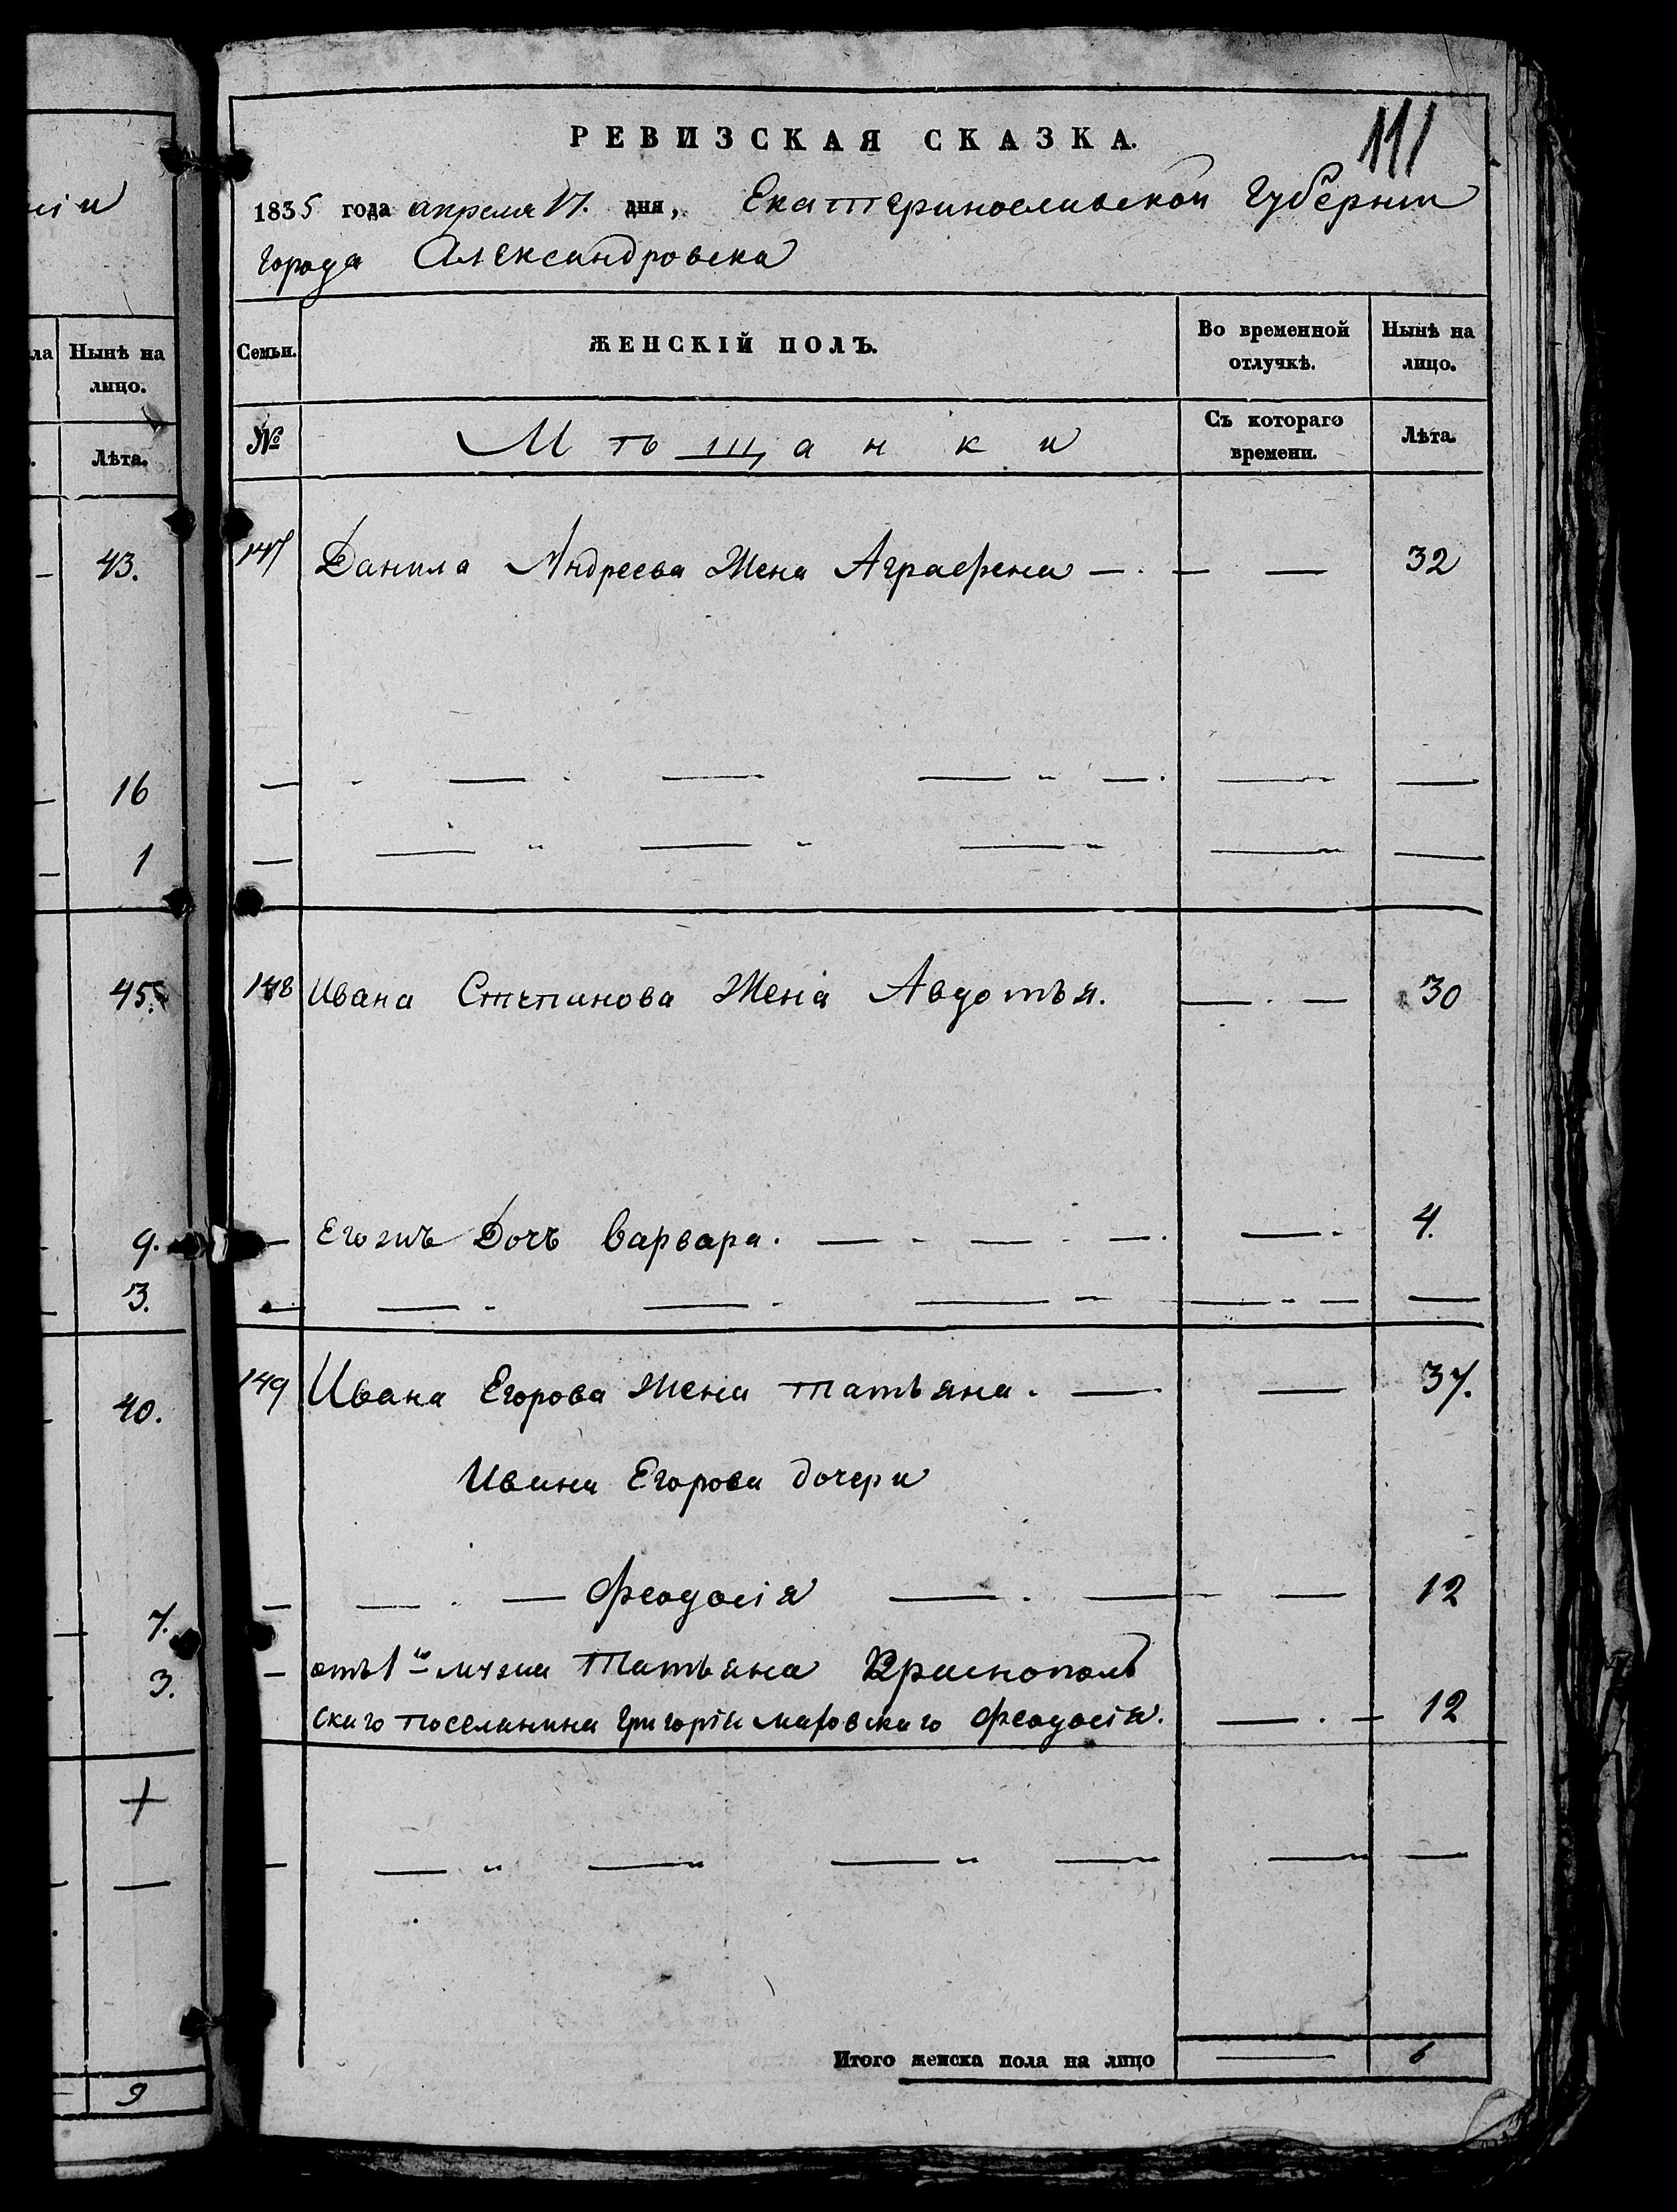 ні и
ла Нынѣ на
лицо.
Лѣта.
43.
16
1
45.
9.
3.
40.
7.
3.
9
111
РЕВИЗСКАЯ СКАЗКА.
1835 года апреля 17. дня, Екатеринославской Губернии
города Александровска
Семьи. ЖЕНСКІЙ ПОЛЪ. Во временной отлучкѣ. Нынѣ на лицо.
№ Мѣщанки Съ котораго времени. Лѣта.
147 Данила Андреева Жена Аграфена — . — — 32
148 Ивана Степанова Жена Авдотья. — . — 30
— Его Дочь Варвара. — - — - —. — . 4.
149 Ивана Егорова Жена Татьяна. — . — 37.
Ивана Егорова дочери
— — . — Феодосія — . — — 12
— отъ 1го мужа Татьяна Краснополь
скаго поселянина Григорія Феодосія. — . — 12
Итого женска пола на лицо — 6